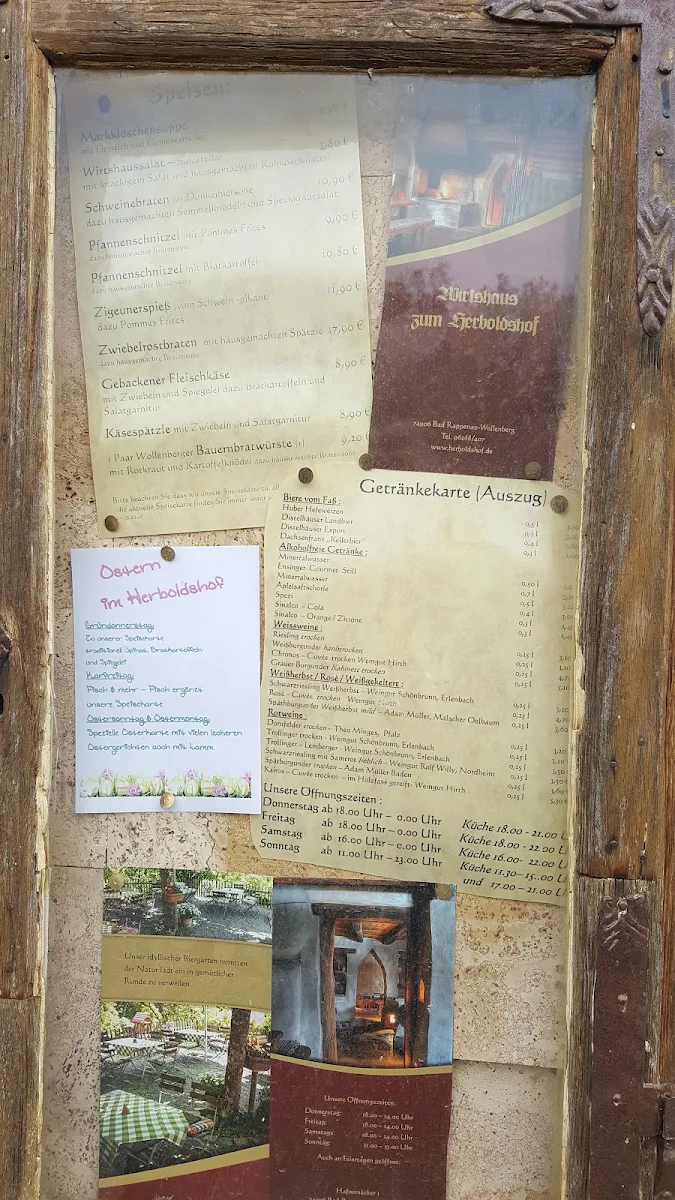 Speisen:
Markklöschens ppe
mit Eierstich und Gemüsestreifen
Wirtshaussalat – Salatteller 3,80 €
mit knackigem Salat und hausgemachten Rohkostsalaten
Schweinebraten an Dunkelbiersoße 10,90 €
dazu hausgemachten Semmelknödeln und Speckkrautsalat
Pfannenschnitzel mit Pommes Frites 9,90 €
dazu hausgemachte Bratensoße
Pfannenschnitzel mit Bratkartoffel 10,80 €
dazu hausgemachte Bratensoße
Zigeunerspieß (vom Schwein -pikant) 11,90 €
dazu Pommes Frites
Zwiebelrostbraten mit hausgemachten Spätzle 17,90 €
dazu hausgemachte Bratensoße
Gebackener Fleischkäse 8,90 €
mit Zwiebeln und Spiegelei dazu Bratkartoffeln und
Salatgarnitur
Käsespätzle mit Zwiebeln und Salatgarnitur 8,90 €
1 Paar Wollenberger Bauernbratwürste 9,20 €
mit Rotkraut und Kartoffelknödel dazu hausgemachte Bratensoße
Bitte beachten Sie dass wir unsere Speisekarte
die aktuelle Speisekarte finden Sie immer unter
Wirtshaus
zum Herboldshof
74906 Bad Rappenau-Wollenberg
Tel. 06268/407
www.herboldshof.de
Getränkekarte (Auszug)
Biere vom Faß :
Huber Hefeweizen 0,5 l
Distelhäuser Landbier 0,5 l
Distelhäuser Export 0,4 l
Dachsenfranz „Kellerbier" 0,3 l
Alkoholfreie Getränke :
Mineralwasser
Ensinger Gourmet Still 0,50 l
Mineralwasser 0,7 l
Apfelsaftschorle 0,5 l
Spezi 0,4 l
Sinalco – Cola 0,3 l
Sinalco – Orange / Zitrone 0,3 l
Weissweine :
Riesling trocken 0,25 l
Weißburgunder halbtrocken 0,25 l
Chronos – Cuvée trocken Weingut Hirch 0,25 l
Grauer Burgunder Kabinett trocken 0,25 l
Weißherbst / Rosé / Weißgekeltert :
Schwarzriesling Weißherbst – Weingut Schönbrunn, Erlenbach
Rosé – Cuvée trocken Weingut
Spätburgunder Weißherbst mild – Adam Müller, Malscher Oelbaum
Rotweine :
Dornfelder trocken – Theo Minges, Pfalz 0,25 l
Trollinger trocken - Weingut Schönbrunn, Erlenbach 0,25 l
Trollinger – Lemberger - Weingut Schönbrunn, Erlenbach 0,25 l
Schwarzriesling mit Samtrot lieblich – Weingut Rolf Willy, Nordheim 0,25 l
Spätburgunder trocken – Adam Müller Baden 0,25 l
Kairos – Cuvée trocken – im Holzfass gereift- Weingut Hirch 0,25 l
Unsere Öffnungszeiten :
Donnerstag ab 18.00 Uhr – 0.00 Uhr Küche 18.00 - 21.00 U
Freitag ab 18.00 Uhr – 0.00 Uhr Küche 18.00 - 22.00 U
Samstag ab 16.00 Uhr – 0.00 Uhr Küche 16.00- 22.00 U
Sonntag ab 11.00 Uhr – 23.00 Uhr Küche 11.30– 15..00 U
und 17.00 – 21.00 U
Ostern
im Herboldshof
Gründonnerstag:
Zu unserer Speisekarte
traditionell Spinat, Bratkartoffeln
und Spiegelei
Karfreitag:
Fisch & mehr – Fisch ergänzt
unsere Speisekarte
Ostersonntag & Ostermontag:
Spezielle Osterkarte mit vielen leckeren
Ostergerichten auch mit Lamm
Unser idyllischer Biergarten inmitten
der Natur lädt ein in gemütlicher
Runde zu verweilen
Unsere Öffnungszeiten:
Donnerstag: 18.00 – 24.00 Uhr
Freitag: 18.00 – 24.00 Uhr
Samstag: 18.00 – 24.00 Uhr
Sonntag: 11.00 – 23.00 Uhr
Auch an Feiertagen geöffnet:
Hafnersäcker 1